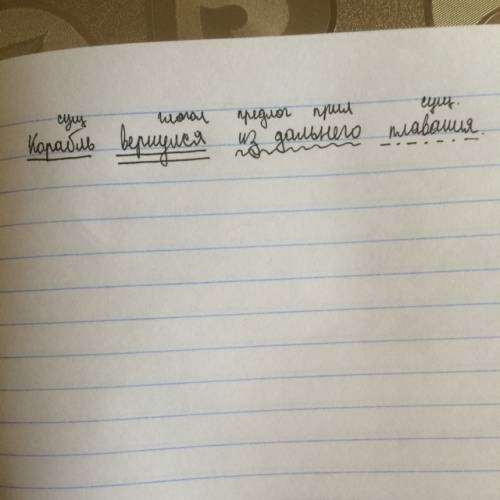 сущ глагол предлог прил сущ.
Корабль вернулся из дальнего плавания.